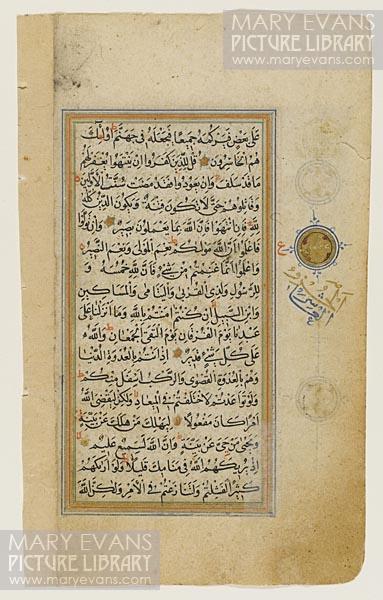 MARY EVANS
PICTURE LIBRARY
www.maryevans.com
على بعض فيركمه جميعا فيجعله في جهنم اولئك
هم الخاسرون قل للذين كفروا ان ينتهوا يغفر لهم
ما قد سلف وان يعودوا فقد مضت سنت الاولين
وقاتلوهم حتى لا تكون فتنة ويكون الدين كله
لله فان انتهوا فان الله بما يعملون بصير وان تولوا
فاعلموا ان الله موليكم نعم المولى ونعم النصير
واعلموا انما غنمتم من شيء فان لله خمسه و
للرسول ولذي القربى واليتامى والمساكين
وابن السبيل ان كنتم امنتم بالله وما انزلنا على
عبدنا يوم الفرقان يوم التقى الجمعان والله
على كل شيء قدير اذ انتم بالعدوة الدنيا
وهم بالعدوة القصوى والركب اسفل منكم
ولو تواعدتم لاختلفتم في الميعاد ولكن ليقضي الله
امرا كان مفعولا ليهلك من هلك عن بينة
ويحيى من حي عن بينة وان الله لسميع عليم
اذ يريكهم الله في منامك قليلا ولو اريكهم
كثيرا لفشلتم ولتنازعتم في الامر ولكن الله
ع
MARY EVANS
PICTURE LIBRARY
www.maryevans.com
MARY EVANS
PICTURE LIBRARY
www.maryevans.com